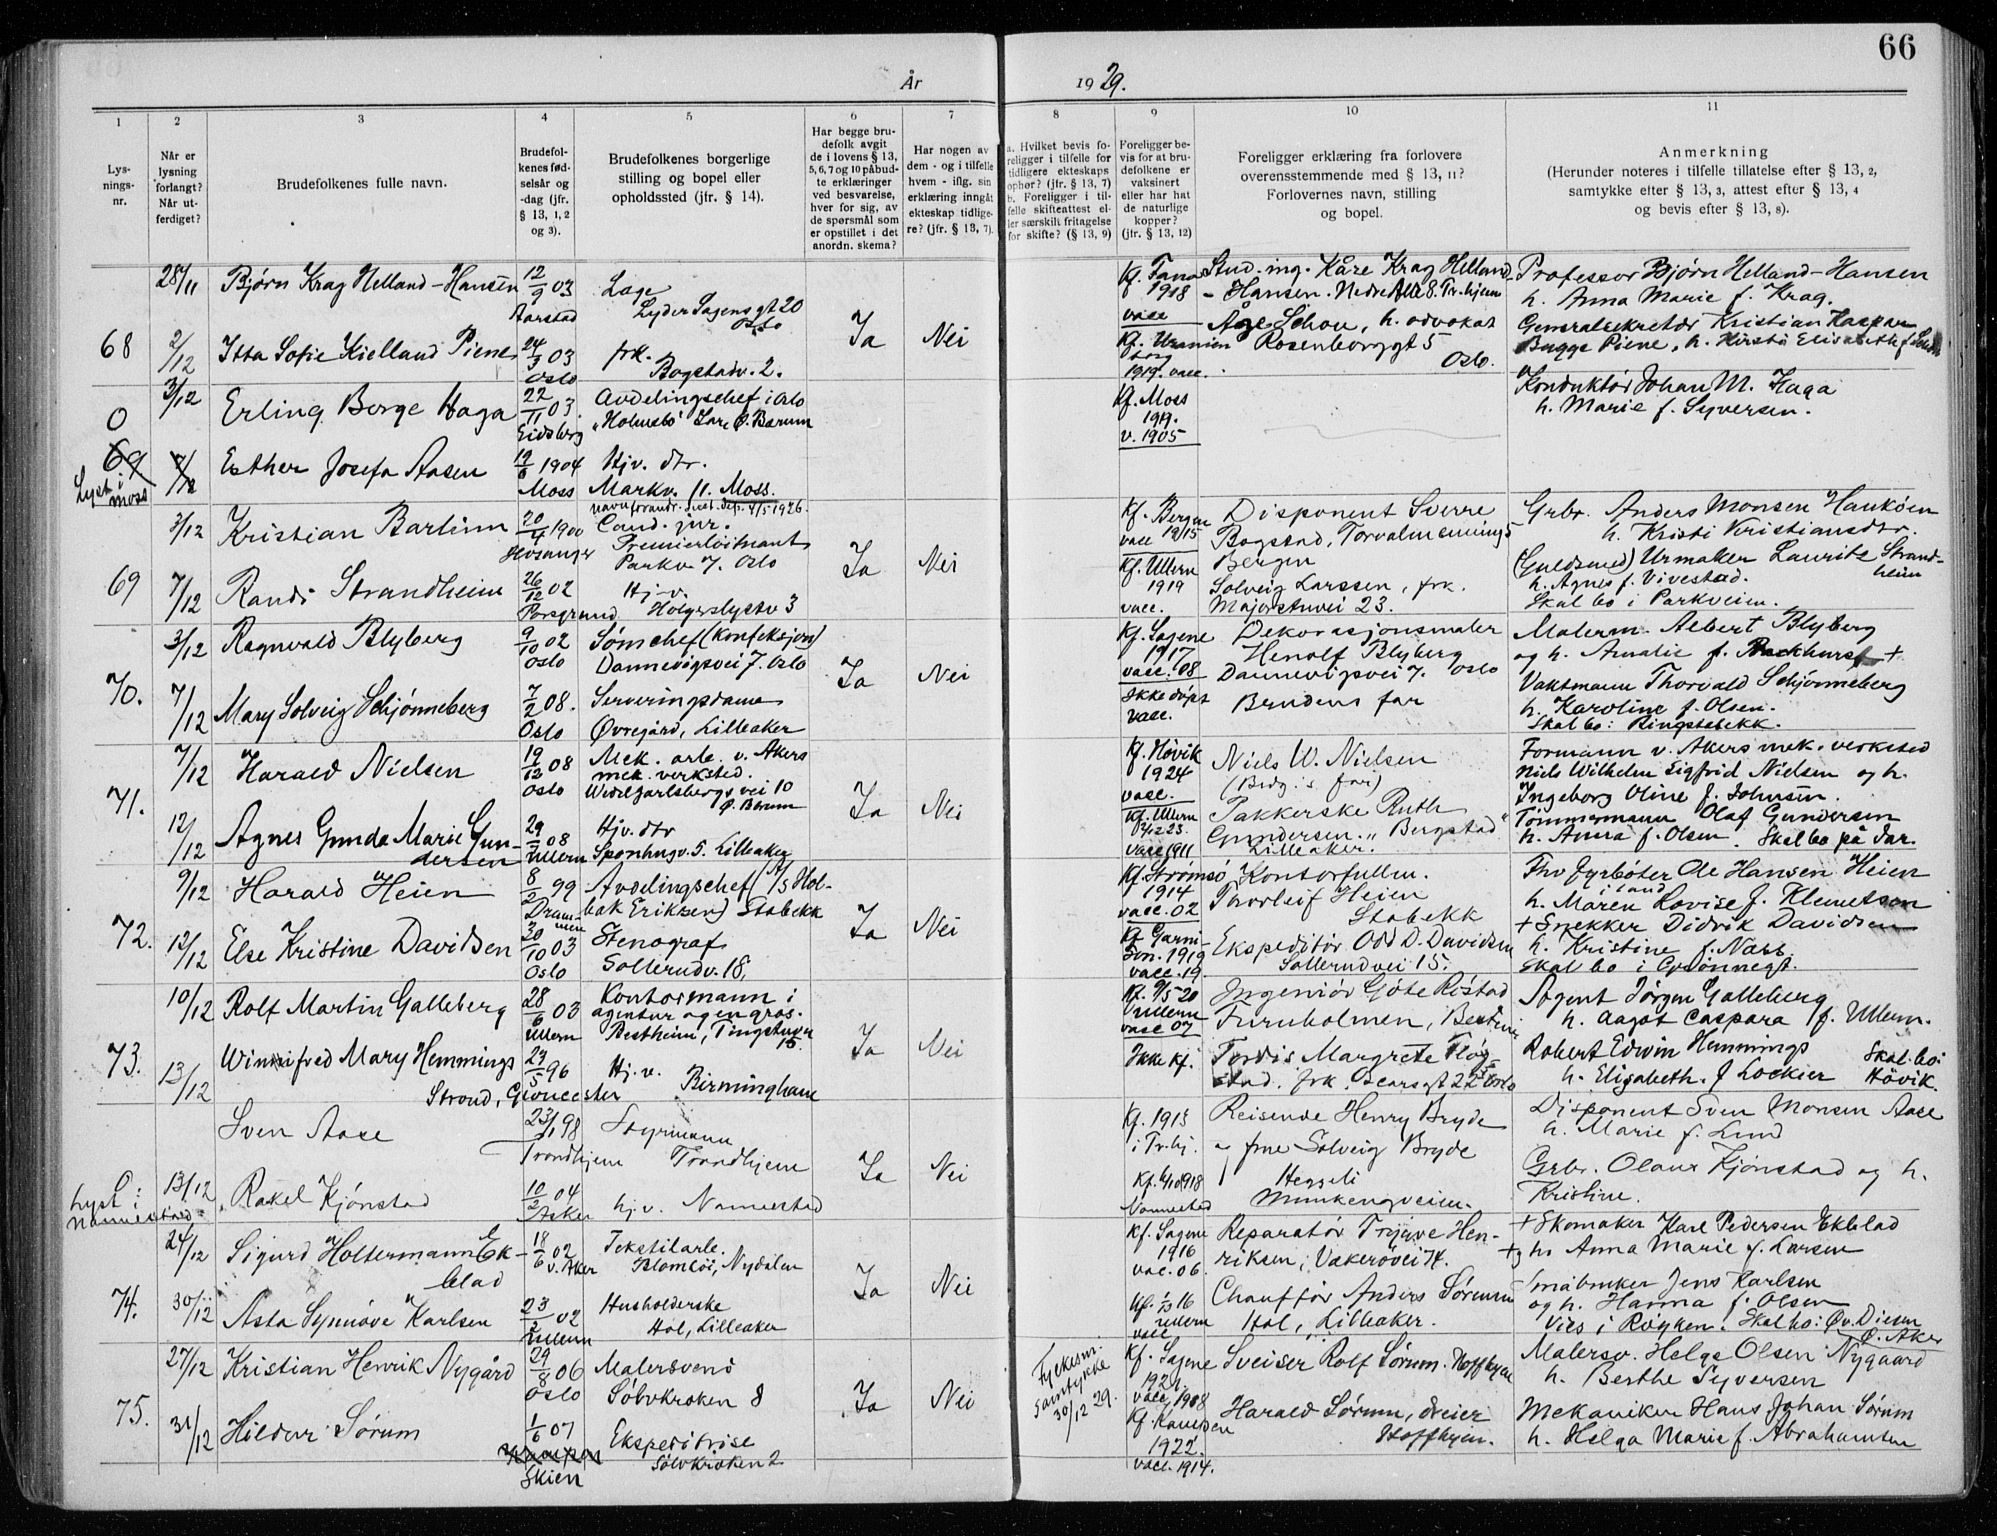 66
År 1929.
1 2 3 4 5 6 7 8 9 10 11
Lys-
nings-
nr.
Når er
lysning
forlangt?
Når ut-
ferdiget?
Brudefolkenes fulle navn.
Brudefol-
kenes fød-
selsår og
-dag (jfr.
§ 13, 1, 2
og 3).
Brudefolkenes borgerlige
stilling og bopel eller
opholdssted (jfr. § 14).
Har begge bru-
defolk avgit
de i lovens § 13,
5, 6, 7 og 10 påbud-
te erklæringer
ved besvarelse,
hver for sig, av
de spørsmål som
er opstillet i det
anordn. skema?
Har nogen av
dem - og i tilfelle
hvem - iflg. sin
erklæring inngått
ekteskap tidlige-
re? (jfr. § 13, 7).
a. Hvilket bevis fo-
religger i tilfelle for
tidligere ekteskaps
ophør? (jfr. § 13, 7)
b. Foreligger i til-
felle skifteattest el-
ler særskilt fritagelse
for skifte? (§ 13, 9)
Foreligger be-
vis for at bru-
defolkene er
vaksinert
eller har hat
de naturlige
kopper?
(jfr. § 13, 12)
Foreligger erklæring fra forlovere
overensstemmende med § 13, 11?
Forlovernes navn, stilling
og bopel.
Anmerkning
(Herunder noteres i tilfelle tillatelse efter § 13, 2,
samtykke efter § 13, 3, attest efter § 13, 4
og bevis efter § 13, 8).
68
28/11 Bjørn Krag Helland-Hansen 12/9 03 Aarstad
Læge
Lyder Sagens gt 20
Oslo
Ja Nei
Kf. Fana
1918
vacc
Stud. ing. Kåre Krag Helland
- Hansen. Nedre Allé 8. Tr.hjem
Professor Bjørn Helland-Hansen
h. Anna Marie f. Krag.
2/12 Itta Sofie Kielland Piene 24/3 03 Oslo
frk.
Bogstadv. 2.
Kf. Uranien
borg
1919. vacc.
Åge Schou, h. advokat
Rosenborggt 5
Oslo.
Generalsekretær Kristian Kaspar
Bugge Piene, h. Kirsti Elisabeth f.
0
3/12 Erling Berge Haga 22/11 03. Eidsberg
Avdelingschef i Oslo
"Holmsbo" Jar, Ø. Bærum
Kf. Moss
1919.
v. 1905
Konduktør Johan M. Haga
h. Marie f. Syversen.
69
Lyst i
Moss
7/12 Esther Josefa Aasen 19/6 1904 Moss
Hjv. dtr.
Markv. 11. Moss.
69
3/12 Kristian Bartinn 20/4 1900 Hosanger
navneforandr. Just. dep. 4/5 1926.
Cand. jur.
Premierløitnant
Parkv. 7. Oslo
Ja Nei
Kf. Bergen
vacc 1915
Disponent Sverre
Bogstad, Torvalmenning 5
Bergen
Grbr. Anders Monsen Haukøen
h. Kristi Kristiansdtr.
7/12 Randi Strandheim 26/12 02 Porsgrund
Hj-v.
Holgerslystv 3
Kf. Ullern
1919
vacc.
Solveig Larssen, frk.
Majorstuvei 23.
(Guldsmed) Urmaker Lauritz Strand-
heim
h. Agnes f. Vivestad.
Skal bo i Parkveien.
70.
3/12 Ragnvald Blyberg 9/10 02 Oslo
Sømchef (Konfeksjon)
Dannevigsvei 7. Oslo
Ja Nei
Kf. Sagene
1917
vacc. 08
Dekorasjonsmaler
Henolf Blyberg
Dannevigsvei 7. Oslo
Malerm. Albert Blyberg
og h. Amalie f. Backhurst +
7/12 Mary Solveig Schjønneberg 7/2 08. Oslo
Serveringsdame
Øvregård, Lilleaker
Ikke døpt
vacc.
Brudens far
Vaktmann Thorvald Schjønneberg
h. Karoline f. Olsen.
Skal bo: Ringstabekk.
71.
7/12 Harald Nielsen 19/12 08 Oslo
Mek. arb. v. Akers
mek. verksted.
Wedel Jarlsbergs vei 10
Ø. Bærum
Ja Nei
Kf. Høvik
1924
vacc.
Niels W. Nielsen
(Brdg.s far)
Formann v. Akers mek. verksted
Niels Wilhelm Sigfrid Nielsen og h.
Ingeborg Oline f. Johnsen.
12/12 Agnes Gunda Marie Gun-
dersen 29/7 08 Ullern
Hjv. dtr
Sponhugv. 5. Lilleaker
Kf. Ullern
9/12 23.
vacc 1911
Pakkerske Ruth
Gundersen. "Bergstad"
Lilleaker.
Tømmermann Olaf Gundersen
h. Anna f. Olsen. Skal bo på Jar.
72.
9/12 Harald Heien 8/2 99 Drammen
Avdelingschef (A/S Hol-
bæk Eriksen) Stabekk
Ja Nei
Kf. Strømsø
1914
vacc. 02
Kontorfullm.
Thorleif Heien
Stabekk
Fhv fyrbøter Ole Hansen Heien
i land
h. Maren Lovise f. Klemetsen
12/12 Else Kristine Davidsen 30/10 03 Oslo
Stenograf
Sollerudv. 18.
Kf Garni-
son. 1919
vacc. 19.
Ekspeditør Odd D. Davidsen
Sollerudvei 15.
+ Snekker Didrik Davidsen
h. Kristine f. Næss.
Skal bo i Grønnegt.
73.
10/12 Rolf Martin Galleberg 28/6 03 Ullern
Kontormann i
agentur og engros.
Bestheim, Tingstuvn
15.
Ja Nei
Kf. 9/5 20
Ullern
vacc 07
Ingeniør Gøte Røstad
Furuholmen, Bestum
Agent Jørgen Galleberg
h. Aagot Caspara f. Ullern.
13/12 Winnifred Mary Hemmings 29/5 96
Stroud, Gloucester
Hj. v. Birmingham
Ikke kf.
Tordis Margrete Fløg-
stad. frk. Oscarsgt 22 Oslo
Robert Edwin Hemmings
h. Elisabeth f Lockier
Skal bo:
Høvik.
Sven Aase 23/1 98 Trondhjem
Styrmann
Trondhjem
Ja Nei
Kf. 1913
i Tr.hj.
Reisende Henry Bryde
og frue Solveig Bryde
Heggeli
Munkengveien.
Disponent Sven Monsen Aase
h. Marie f. Lund
0:
Lyst i
Nannestad
13/12 Rakel Kjønstad 10/2 04 Asker
hj. v. Nannestad
Kf. 6/10 1918
Nannestad
Grbr. Olaus Kjønstad og h.
Kristine.
74.
24/12 Sigurd Holtermann Ek-
blad 18/6 02 v. Aker
Tekstilarb.
Blomhøi, Nydalen
Ja Nei
Kf. Sagene
1916
vac. 06.
Reparatør Trygve Hen-
riksen, Vækerøvei 74.
+ Skomaker Karl Pedersen Ekblad
+ og h. Anna Marie f. Larsen
30/12 Asta Synnøve Karlsen 23/2 02 Ullern
Husholderske
Hol, Lilleaker
Kf. 16
Ullern
vacc
Chauffør Anders Sørensen
Hol, Lilleaker.
Småbruker Jens Karlsen
og h. Hanna f. Olsen
Vies i Røyken. Skal bo: Øv. Diesen
Ø. Aker
75.
27/12 Kristian Henrik Nygård 29/8 06 Oslo
Malersvend
Sølvkroken 8
Ja Nei
Fylkesm.
samtykke
30/12 29.
Kf. Sagene
1921.
vacc 1908
Sveiser Rolf Sørum. Hoffbyen
Malersv. Helge Olsen Nygaard
h. Berthe Syversen
31/12 Hildur Sørum 1/6 07
Skien
Ekspeditrise
Sølvkroken 2
Kf.
1922.
vacc. 1914.
Harald Sørum, dreier
Hoffbyen.
Mekaniker Hans Johan Sørum
h. Helga Marie f. Abrahamsen